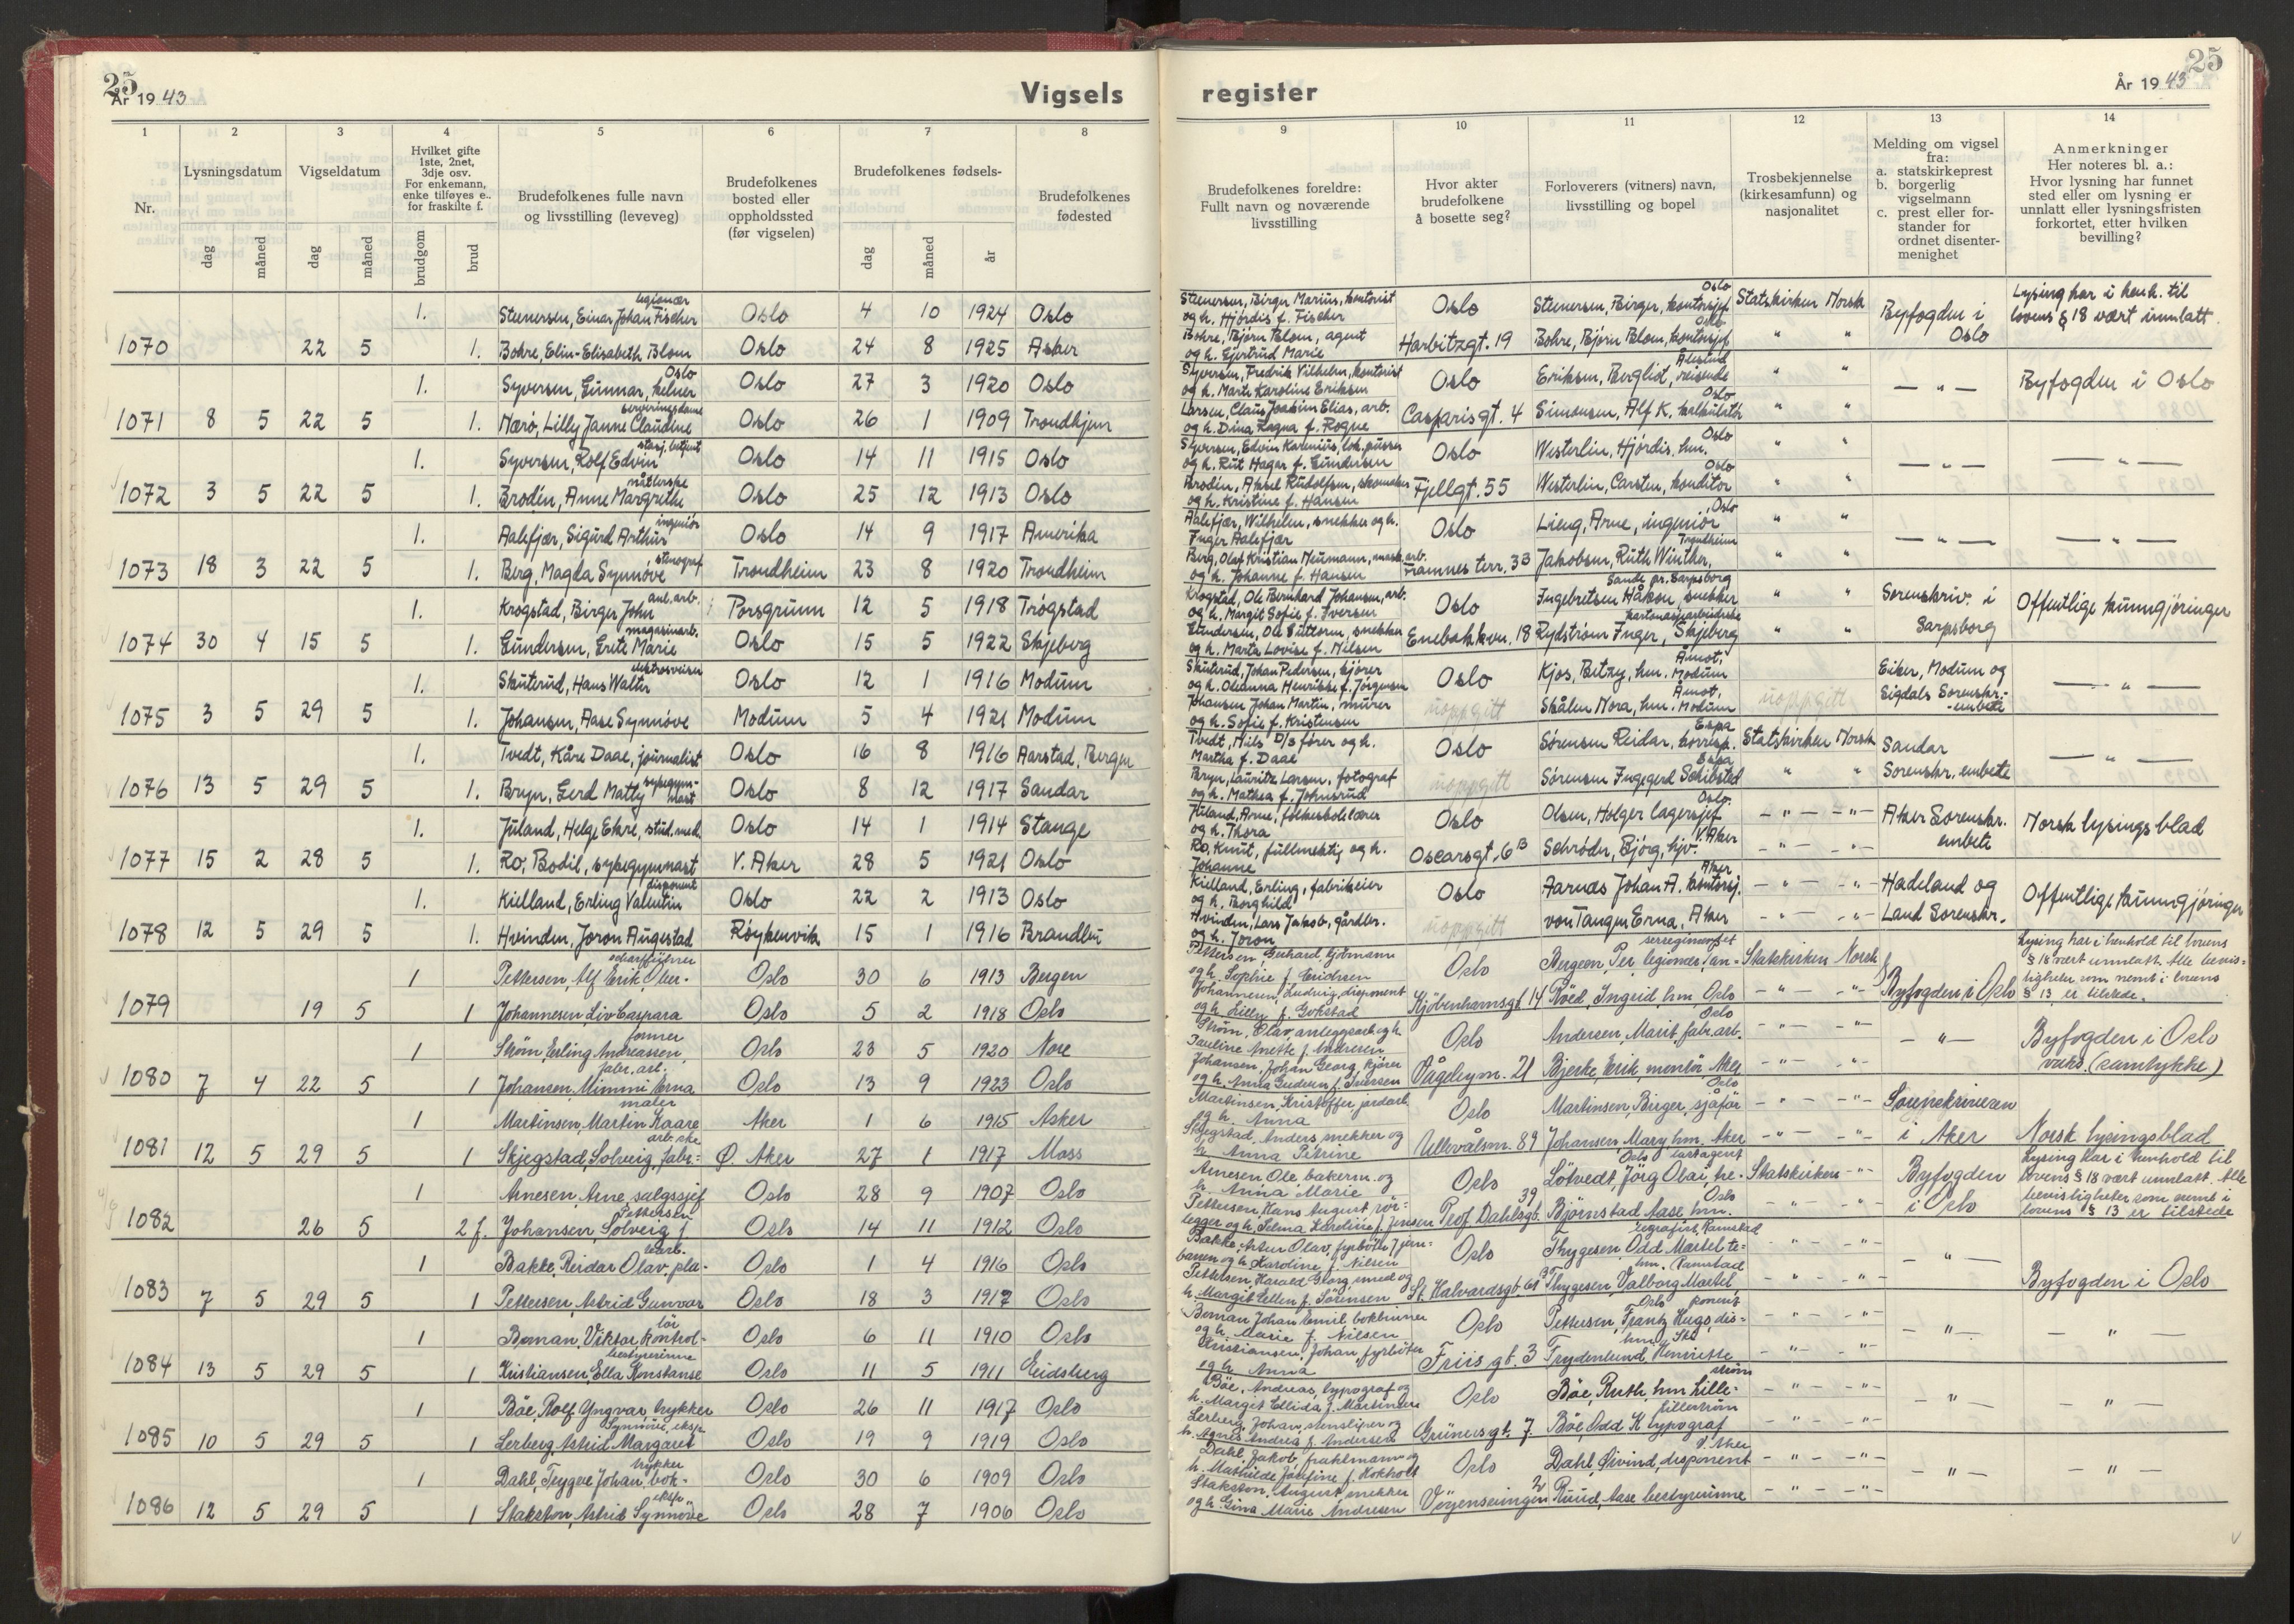 25
År 19 43
Vigsels
register
År 19 43
25
1 2 3 4 5 6 7 8
Nr.
Lysningsdatum
dag måned
Vigseldatum
dag måned
Hvilket gifte
1ste, 2net,
3dje osv.
For enkemann,
enke tilføyes e..
for fraskilte f.
brudgom brud
Brudefolkenes fulle navn
og livsstilling (leveveg)
Brudefolkenes
bosted eller
oppholdssted
(før vigselen)
Brudefolkenes fødsels-
dag måned år
Brudefolkenes
fødested
9 10 11 12 13 14
Brudefolkenes foreldre:
Fullt navn og noværende
livsstilling
Hvor akter
brudefolkene
å bosette seg?
Forloverers (vitners) navn,
livsstilling og bopel
Trosbekjennelse
(kirkesamfunn) og
nasjonalitet
Melding om vigsel
fra:
a. statskirkeprest
b. borgerlig
vigselmann
c. prest eller for-
stander for
ordnet disenter-
menighet
Anmerkninger
Her noteres bl. a.:
Hvor lysning har funnet
sted eller om lysning er
unnlatt eller lysningsfristen
forkortet, etter hvilken
bevilling?
legionær
1. Steenersen, Einar Johan Fischer Oslo 4 10 1924 Oslo
1070 22 5 1. Bohre, Elin-Elisabeth Blom Oslo 24 8 1925 Asker
Oslo
1. Syversen, Gunnar, kelner Oslo 27 3 1920 Oslo
serveringsdame
1071 8 5 22 5 1. Nærø, Lilly Janne Claudine Oslo 26 1 1909 Trondhjem
stasj. betjent
1. Syversen, Rolf Edvin Oslo 14 11 1915 Oslo
måtlerske
1072 3 5 22 5 1. Brodin, Anne Margrethe Oslo 25 12 1913 Oslo
ingeniør
1. Aalefjær, Sigurd Arthur Oslo 14 9 1917 Amerika
stenograf
1073 18 3 22 5 1. Berg, Magda Synnøve Trondheim 23 8 1920 Trondheim
anl. arb.
1. Krogstad, Birger John Porsgrunn 12 5 1918 Trøgstad
magasinarb.
1074 30 4 15 5 1. Gundersen, Grete Marie Oslo 15 5 1922 Skjeberg
elektrosveiser
1. Skuterud, Hans Walter Oslo 12 1 1916 Modum
1075 3 5 29 5 1. Johansen, Aase Synnøve Modum 5 4 1921 Modum
1. Tvedt, Kåre Daae, journalist Oslo 16 8 1916 Aarstad, Bergen
sykegym-
1076 13 5 29 5 1. Bryn, Gerd Matty nast Oslo 8 12 1917 Sandar
1. Juland, Helge Ekre, stud. med. Oslo 14 1 1914 Stange
1077 15 2 28 5 1. Ro, Bodil, sykegymnast V. Aker 28 5 1921 Oslo
disponent
1. Kielland, Erling Valentin Oslo 22 2 1913 Oslo
1078 12 5 29 5 1. Hvinden, Joron Augestad Røykenvik 15 1 1916 Brandbu
scharfführer
1 Pettersen, Alf Erik, Ober- Oslo 30 6 1913 Bergen
1079 19 5 1 Johannesen, Liv Caspara Oslo 5 2 1918 Oslo
former
1 Strøm, Erling Andreassen, Oslo 23 5 1920 Nore
fabr. arb.
1080 7 4 22 5 1 Johansen, Mimmi Erna Oslo 13 9 1923 Oslo
maler
1 Martinsen, Martin Kaare Aker 1 6 1915 Asker
arb.ske
1081 12 5 29 5 1 Skjegstad, Solveig, fabr= Ø. Aker 27 1 1917 Moss
1 Arnesen, Arne, salgssjef Oslo 28 9 1907 Oslo
Pettersen
1082 26 5 2 f. Johansen, Solveig f. Oslo 14 11 1912 Oslo
1 Bakke, Reidar Olav, pla- Oslo 1 4 1916 Oslo
1083 7 5 29 5 1 Pettersen, Astrid Gunvor Oslo 18 3 1917 Oslo
lör
1 Boman, Viktor, kontrol- Oslo 6 11 1910 Oslo
bestyrerinne
1084 13 5 29 5 1 Kristiansen, Ella Konstanse Oslo 11 5 1911 Eidsberg
1 Böe, Rolf Yngvar, trykker Oslo 26 11 1917 Oslo
Synnöve, eksp.
1085 10 5 29 5 1 Lerberg, Astrid Margaret Oslo 19 9 1919 Oslo
trykker
1 Dahl, Trygve Johan, bok- Oslo 30 6 1909 Oslo
eksp.
1086 12 5 29 5 1 Stakston, Astrid Synnöve Oslo 28 7 1906 Oslo
Steenersen, Birger Marius, kontorist
og h. Hjørdis f. Fischer
Oslo
Steenersen, Birger, kontorsjef Oslo
Statskirken Norsk
Byfogden i
Oslo
Lysing har i henh. til
lovens § 18 vært unnlatt.
Bohre, Bjørn Blom, agent
og h. Gjertrud Marie
Harbitzgt. 19
Bohre, Bjørn Blom, kontorsjef Oslo
Syversen, Fredrik Vilhelm, kontorist
og h. Marte Karoline Eriksen
Oslo
Eriksen, Bergliot, reisende
— " —
Byfogden i Oslo
Larsen, Claus Joakim Elias, arb.
og h. Dina Ragna f. Rogne
Casparisgt. 4
Simonsen, Alf K. kalkulatør Oslo
Syversen, Edvin Karenius, lok. pusser
og h. Rut Hagar f. Gundersen
Oslo
Westerlin, Hjørdis, hm. Oslo
— " — — " —
Brodin, Aksel Rudolfsen, skomaker
og h. Kristine f. Hansen
Fjellgt. 55
Westerlin, Carsten, konditor Oslo
Aalefjær, Wilhelm, snekker og h.
Inger Aalefjær
Oslo
Lieng, Arne, ingeniør Oslo
— " — — " —
Berg, Olaf Kristian Neumann, mask. arb.
og h. Johanne f. Hansen
Framnes terr. 3B
Jakobsen, Ruth Winther, Trondheim
Krogstad, Ole Bernhard Johansen, arb.
og h. Margit Sofie f. Iversen
Oslo
Sande pr. Sarpsborg
Ingebretsen Håkon, snekker
Sorenskriv. i
Sarpsborg
Offentlige kunngjøringer
Gundersen, Ole Guttorm, snekker
og h. Marta Lovise f. Nilsen
Enebakkvn. 18
kartonasjearbeiderske
Rydstrøm Inger, Skjeberg
Skuterud, Johan Pedersen, kjører
og h. Oleanna Henrikke f. Jørgensen
Oslo
Kjos, Betzy, hm. Åmot, Modum
Eiker, Modum og
Sigdals Sorenskr.-
embete
— " —
Johansen Johan Martin, murer
og h. Sofie f. Kristensen
uoppgitt
Skålen Nora, hm. Åmot, Modum
uoppgitt
Tvedt, Nils D/S fører og h.
Martha f. Daae
Oslo
Sørensen Reidar, korresp. Espa
Statskirken Norsk
Sandar
Sorenskr. embete
— " —
Bryn, Lauritz Larsen, fotograf
og h. Mathea f. Johnsrud
uoppgitt
Sørensen Ingegerd Schibsted Espa
Juland, Arne, folkeskolelærer
og h. Thora
Oslo
Olsen, Holger lagersjef Oslo.
Aker Sorenskr.
embete
Norsk lysingsblad
Ro, Knut, fullmektig og h.
Johanne
Oscarsgt. 6 B
Schrøder, Bjørg, hjv. V. Aker
Kielland, Erling, fabrikeier
og h. Borghild
Oslo
Aarnæs Johan A. kontorsj. Aker
Hadeland og
Land Sorenskr.
Offentlige kunngjøringer
Hvinden, Lars Jakob, gårdbr.
og h. Joron
uoppgitt
von Tangen Erna, Aker
Pettersen, Gerhard, kjörmann
og h. Sophie f. Erichsen
Oslo
serregimentet
Bergeen, Per, legionær, pan-
Statskirken Norsk
Byfogden i Oslo
Lysing har i henhold til lovens
§ 18 vært unnlatt. Alle bevis=
ligheter som nemt i lovens
§ 13 er tilstede.
Johannesen, Ludvig, disponent
og h. Lilly f. Gokstad
Kjöbenhavnsgt. 14
Röed, Ingrid hm Oslo
Strøm, Olav, anleggsarb. og h.
Pauline Anette f. Andresen
Oslo
Andersen, Marit, fabr. arb. Oslo
— " —
Byfogden i Oslo
vuks. (samtykke)
Johansen, Johan Georg, kjörer
og h. Anna Gudrun f. Iversen
Vågebyvn. 21
Bjerke, Erik, montör, Aker
Martinsen, Kristoffer jordarb.
og h. Anna
Oslo
Martinsen, Birger, sjåför Oslo
Sorenskriveren
i Aker
Norsk lysingsblad
Skjegstad, Anders, snekker og
h. Anna Petrine
Ullevålsvn. 89
Johansen, Mary hm. Aker
Arnesen Ole, bakerm. og
h. Anna Marie
Oslo
Oslo lastagent
Lötvedt, Jörg Olai, he-
Statskirken
Byfogden
i Oslo
Lysing har i henhold til
lovens § 18 vært unnlatt. Alle
bevisligheter som nemt i
lovens § 13 er tilstede
Pettersen, Hans August, rör=
legger og h. Selma Karoline f. Jensen
Prof. Dahlsgt. 39
Björnstad Aase, hm. Oslo
Bakke, Artur Olav, fyrböter jern=
banen og h. Karoline f. Nilsen
Oslo
legrafist, Ramstad
Thygesen Odd Martel te=
— " —
Byfogden i Oslo
Pettersen, Harald Georg, smed og
h. Margit Ellen f. Sørensen
St. Halvardsgt. 61
hm. Ramstad
Thygesen, Valborg Martel,
Boman Johan Emil, bokbinner
og h. Marie f. Nilsen
Oslo
Oslo ponent
Pettersen, Frantz Hugo, dis=
— " — — " —
Kristiansen, Johan, fyrböter
og h. Anna
Friis gt. 3
Trydenlund, Henriette
Böe, Andreas, typograf og
h. Margit Ellida f. Martinsen
Oslo
ström
Böe, Ruth, hm Lille=
— " — — " —
Lerberg, Johan, stensliper og
h. Agnes Andrea f. Andersen
Grünersgt. 7
Lilleström
Böe, Odd K typograf
Dahl, Jakob, fraktmann og
h. Mathilde Josefine f. Kokholt
Oslo
V. Aker
Dahl, Øivind, disponent
— " — — " —
Stakston, August, snekker
og h. Gina Marie Andresen
Vöyensvingen 2
Ruud, Aase bestyrerinne